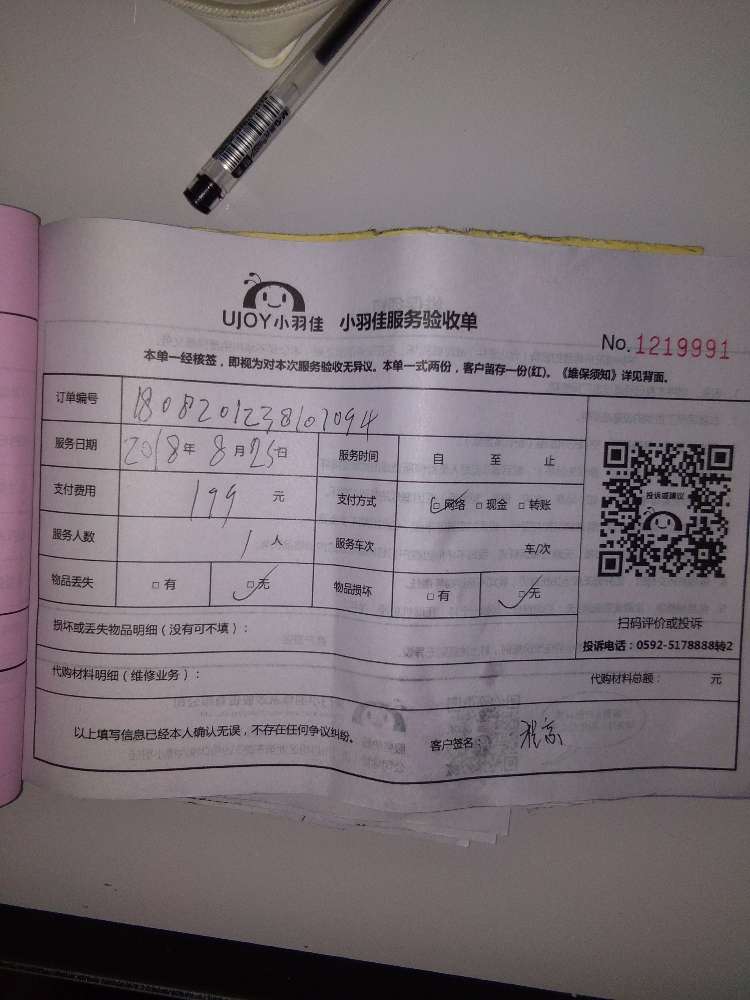 UJOY小羽佳 小羽佳服务验收单
No. 1219991
本单一经核签，即视为对本次服务验收无异议。本单一式两份，客户留存一份(红)。《维保须知》详见背面。
订单编号 1808201238107094
服务日期 2018年 8月25日 服务时间 自 至 止
支付费用 199 元 支付方式 □网络 □现金 □转账
投诉或建议
服务人数 1 人 服务车次 车/次
物品丢失 □有 □无 物品损坏 □有 □无
扫码评价或投诉
投诉电话：0592-5178888转2
损坏或丢失物品明细（没有可不填）：
代购材料明细（维修业务）： 代购材料总额： 元
以上填写信息已经本人确认无误，不存在任何争议纠纷。 客户签名：